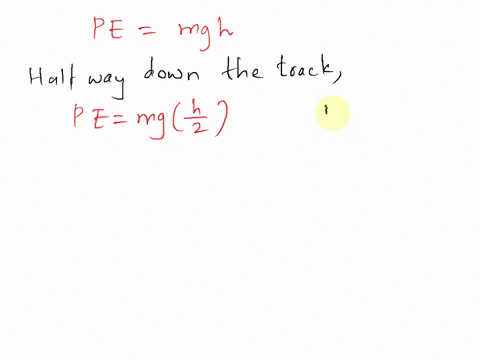 PE = mgh
Half way down the track,
PE = mg(h/2)